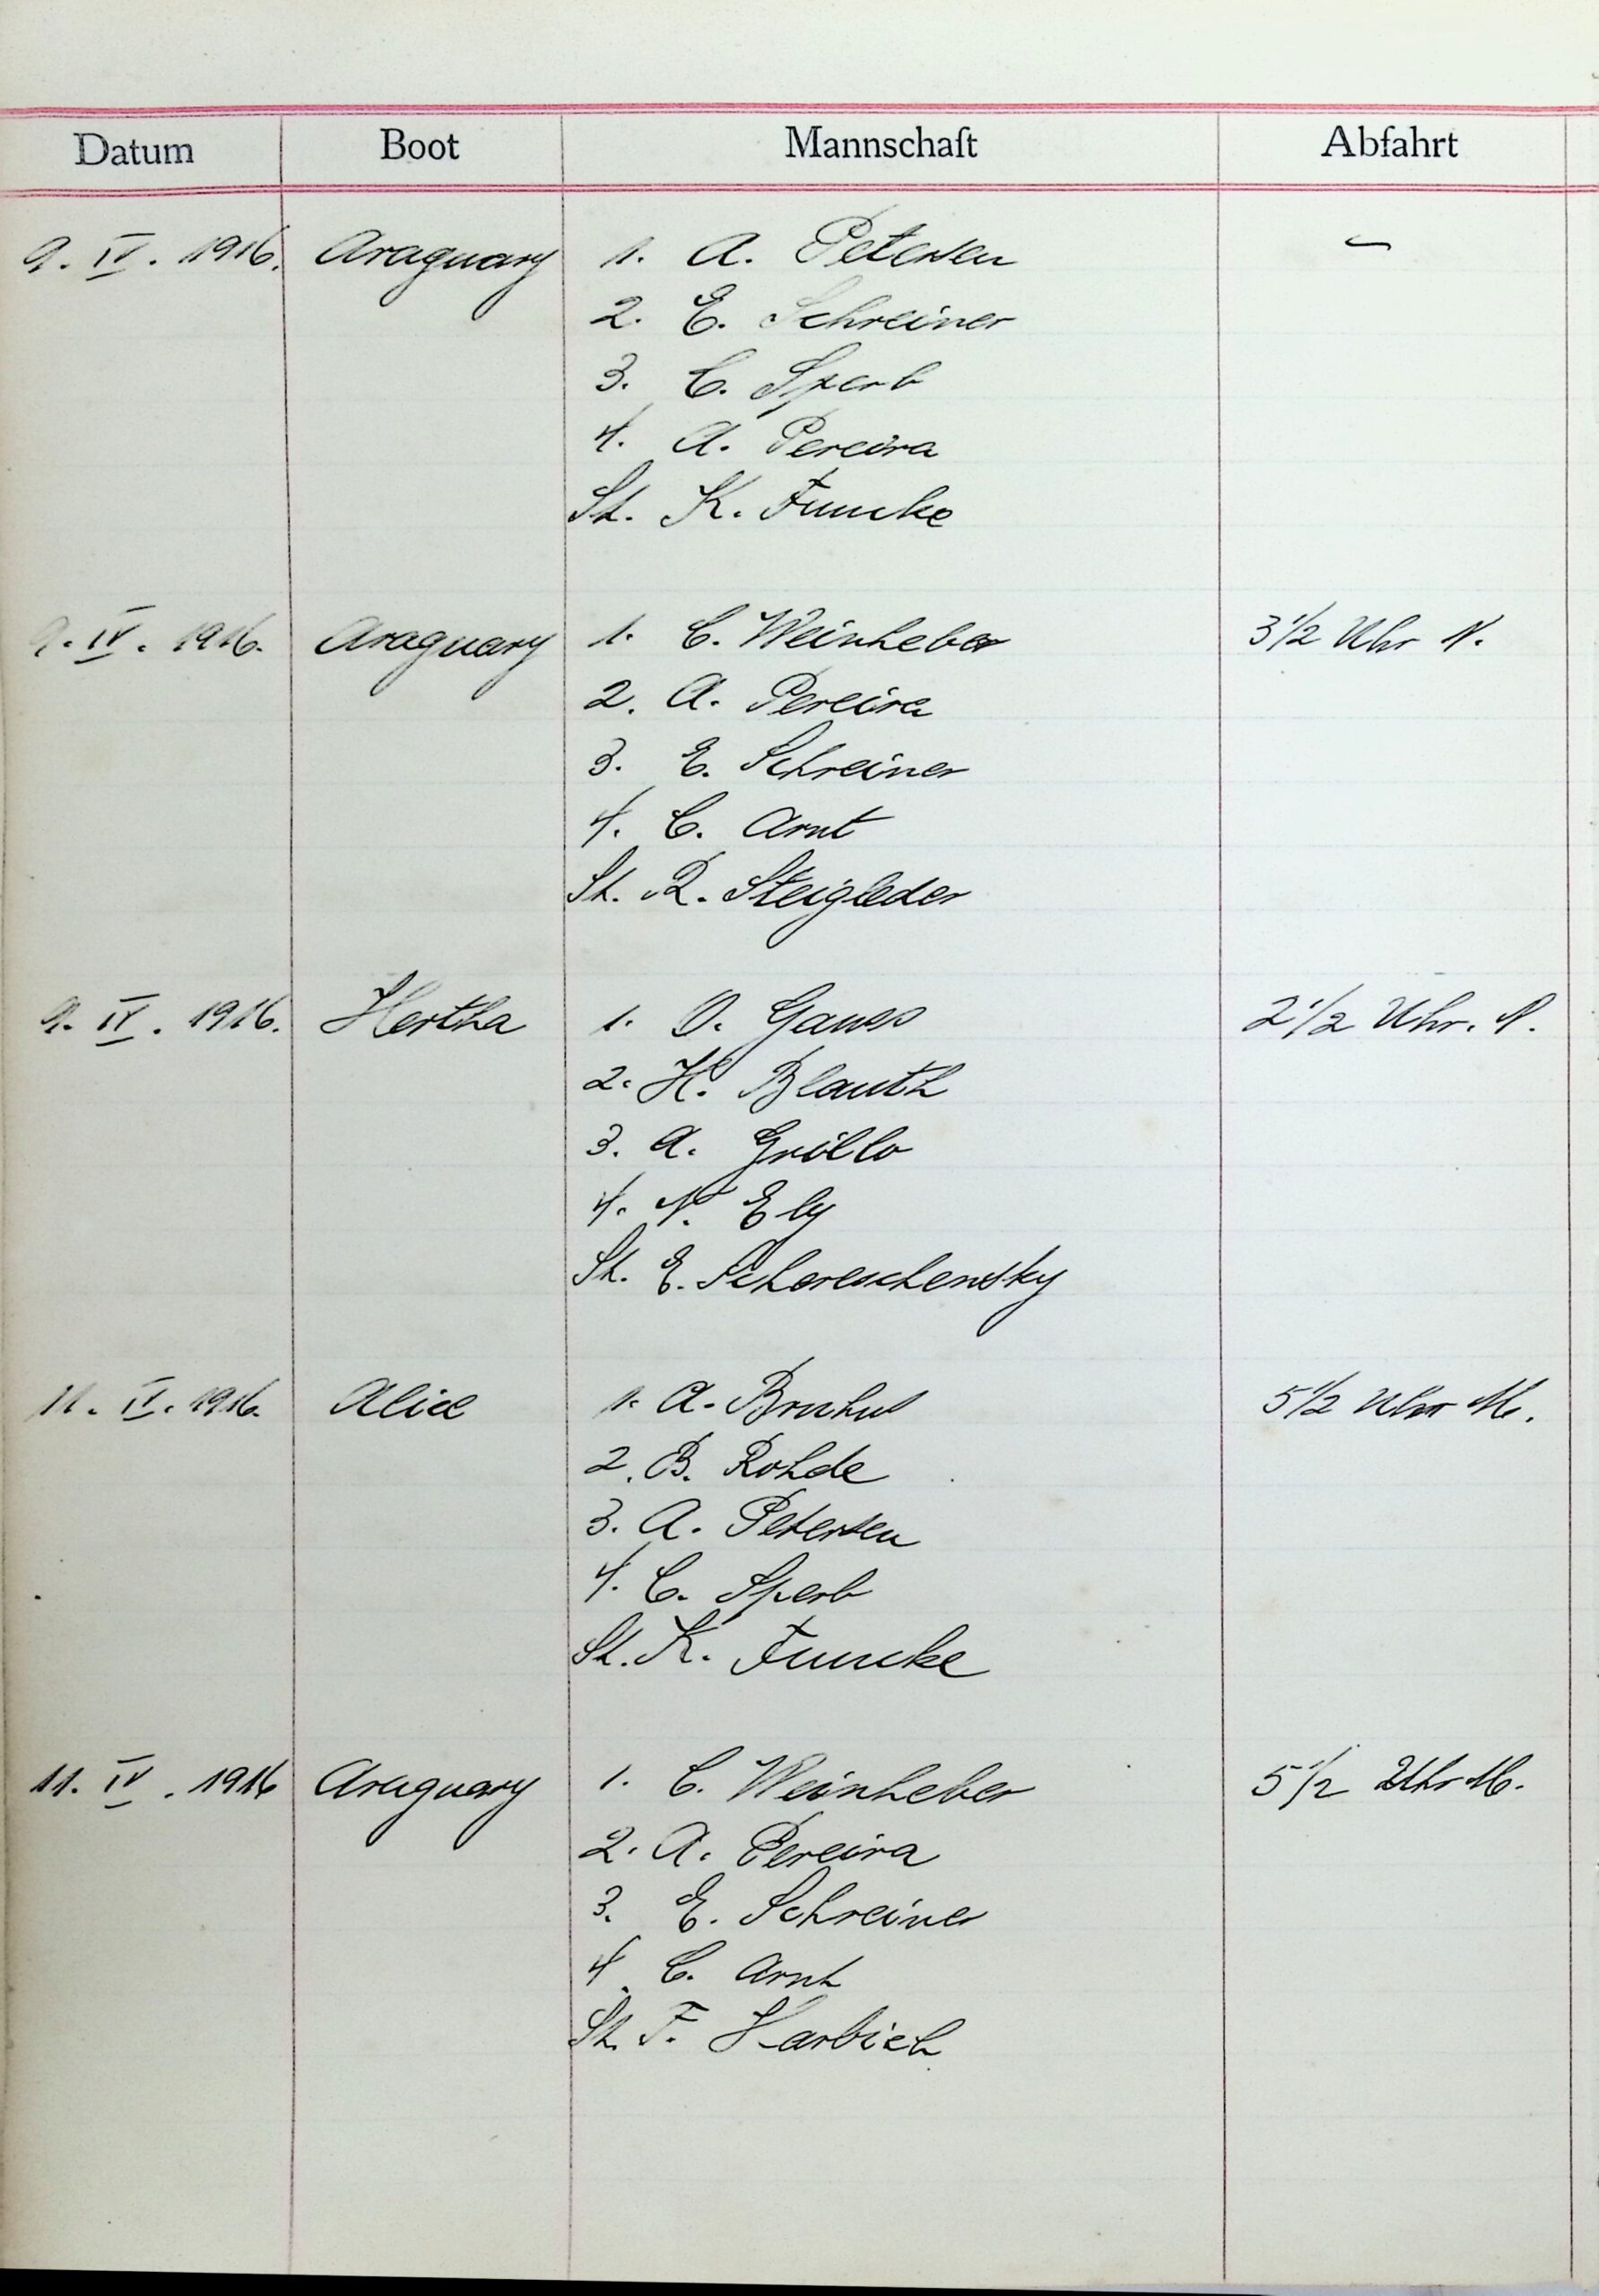 Datum Boot Mannschaft Abfahrt
9. IV. 1916. Araguary 1. A. Petersen –
2. E. Schreiner
3. C. Sperb
4. A. Pereira
St. K. Funcke
9. IV. 1916. Araguary 1. C. Weinheber 3 1/2 Uhr N.
2. A. Pereira
3. E. Schreiner
4. C. Arnt
St. R. Steigleder
9. IV. 1916. Hertha 1. O. Gauss 2 1/2 Uhr. N.
2. H. Blauth
3. A. Grillo
4. N. Ely
St. E. Schereschensky
11. IV. 1916. Alice 1. A. Bruhns 5 1/2 Uhr M.
2. B. Rohde
3. A. Petersen
4. C. Sperb
St. K. Funcke
11. IV. 1916 Araguary 1. C. Weinheber 5 1/2 Uhr M.
2. A. Pereira
3. E. Schreiner
4. C. Arnt
St. F. Harbich